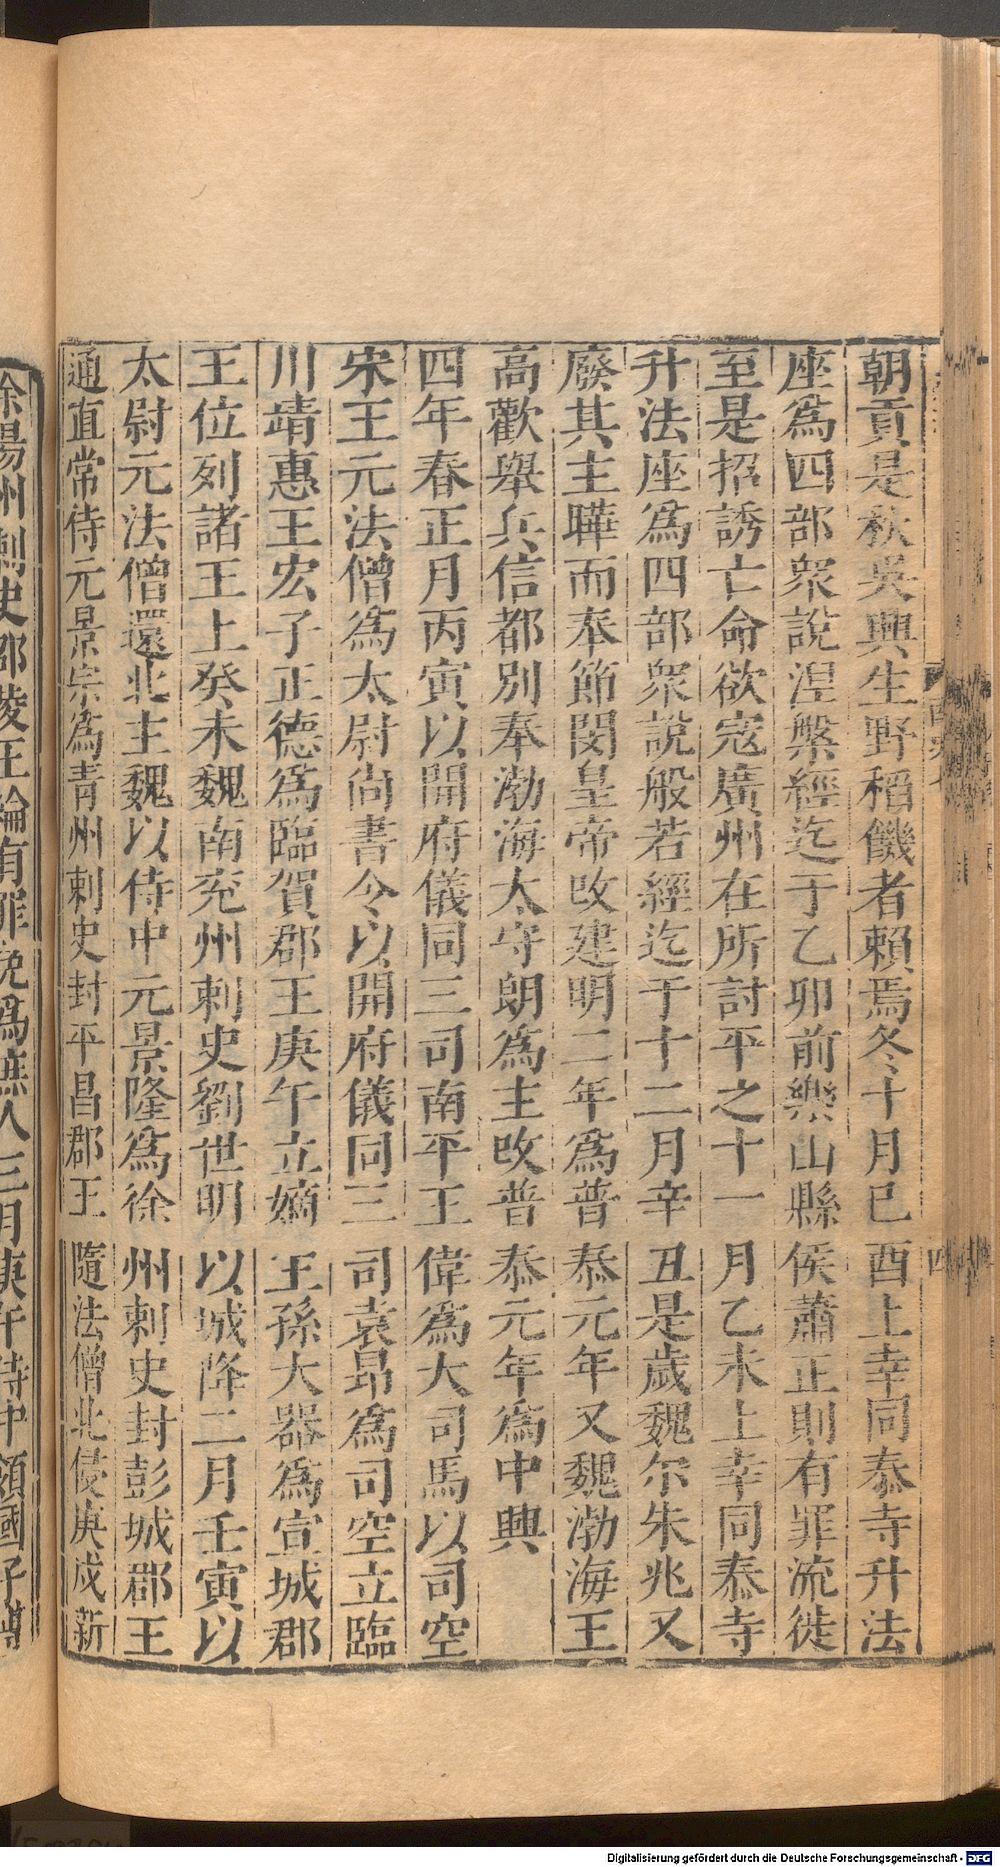 朝貢是秋吳興生野稻饑者賴焉冬十月已酉上幸同泰寺升法
座爲四部衆說涅槃經迄于乙卯前樂山縣侯蕭正則有罪流徙
至是招誘亡命欲寇廣州在所討平之十一月乙未上幸同泰寺
升法座爲四部衆說般若經迄于十二月辛丑是歲魏尔朱兆又
廢其主曄而奉節閔皇帝改建明二年爲普泰元年又魏渤海王
高歡舉兵信都別奉渤海太守朗爲主改普泰元年爲中興
四年春正月丙寅以開府儀同三司南平王偉爲大司馬以司空
宋王元法僧爲太尉尚書令以開府儀同三司袁昂爲司空立臨
川靖惠王宏子正德爲臨賀郡王庚午立嫡王孫大器爲宣城郡
王位列諸王上癸未魏南兖州刺史劉世明以城降二月壬寅以
太尉元法僧還北主魏以侍中元景隆爲徐州刺史封彭城郡王
通直常侍元景宗爲青州刺史封平昌郡王隨法僧北侵庚戌新
除揚州刺史邵陵王綸有罪免爲庶人三月庚午侍中領國子博
Digitalisierung gefördert durch die Deutsche Forschungsgemeinschaft - DFG